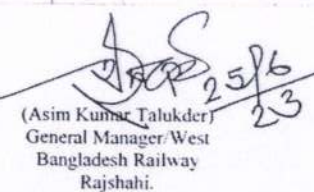 25/6
23
(Asim Kumar Talukder)
General Manager/West
Bangladesh Railway
Rajshahi.